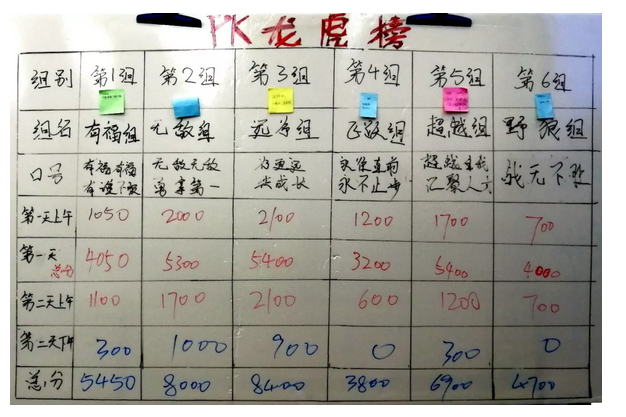 PK龙虎榜
组别 第1组 第2组 第3组 第4组 第5组 第6组
组名 有福组 无敌组 远游组 飞跃组 超越组 野狼组
口号 有福有福 无敌无敌 永往直前 超越自我 战无不胜
勇拿第一 共成长 永不止步 汇聚人
第一天上午 1050 2000 2100 1200 1700 700
第一天总分 4050 5300 5400 3200 5400 4000
第二天上午 1100 1700 2100 600 1200 700
第二天下午 300 1000 900 0 300 0
总分 5450 8000 8400 3800 6900 4700